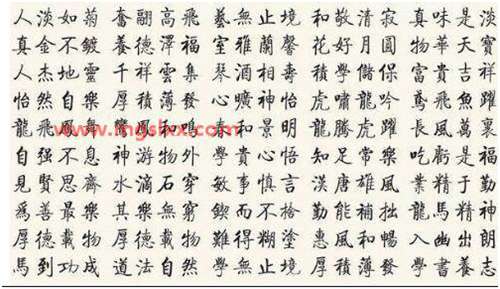 人淡如菊 奮翮高飛 藝無止境 和敬清寂 真味是淡
真金不鍍 養德澤福 室雅蘭馨 花好月圓 物華天寶
人杰地靈 千祥雲集 琴酒相壽 積學儲保 富貴吉祥
怡然自樂 厚積薄發 心曠神怡 虎嘯龍吟 鳶飛魚躍
龍飛鳳舞 鸞鳳和鳴 春和景明 龍騰虎躍 長風萬裏
自强不息 神游物外 貴心悟 知足常樂 吃虧是福
見賢思齊 水滴石穿 敏事慎言 漢唐雄風 業精于勤
爲善最樂 其樂無窮 鍥而不捨 勤能補拙 龍馬精神
厚德載物 厚德載物 難得糊塗 惠風和暢 入幽出朗
馬到功成 道法自然 學無止境 厚積薄發 學書養志